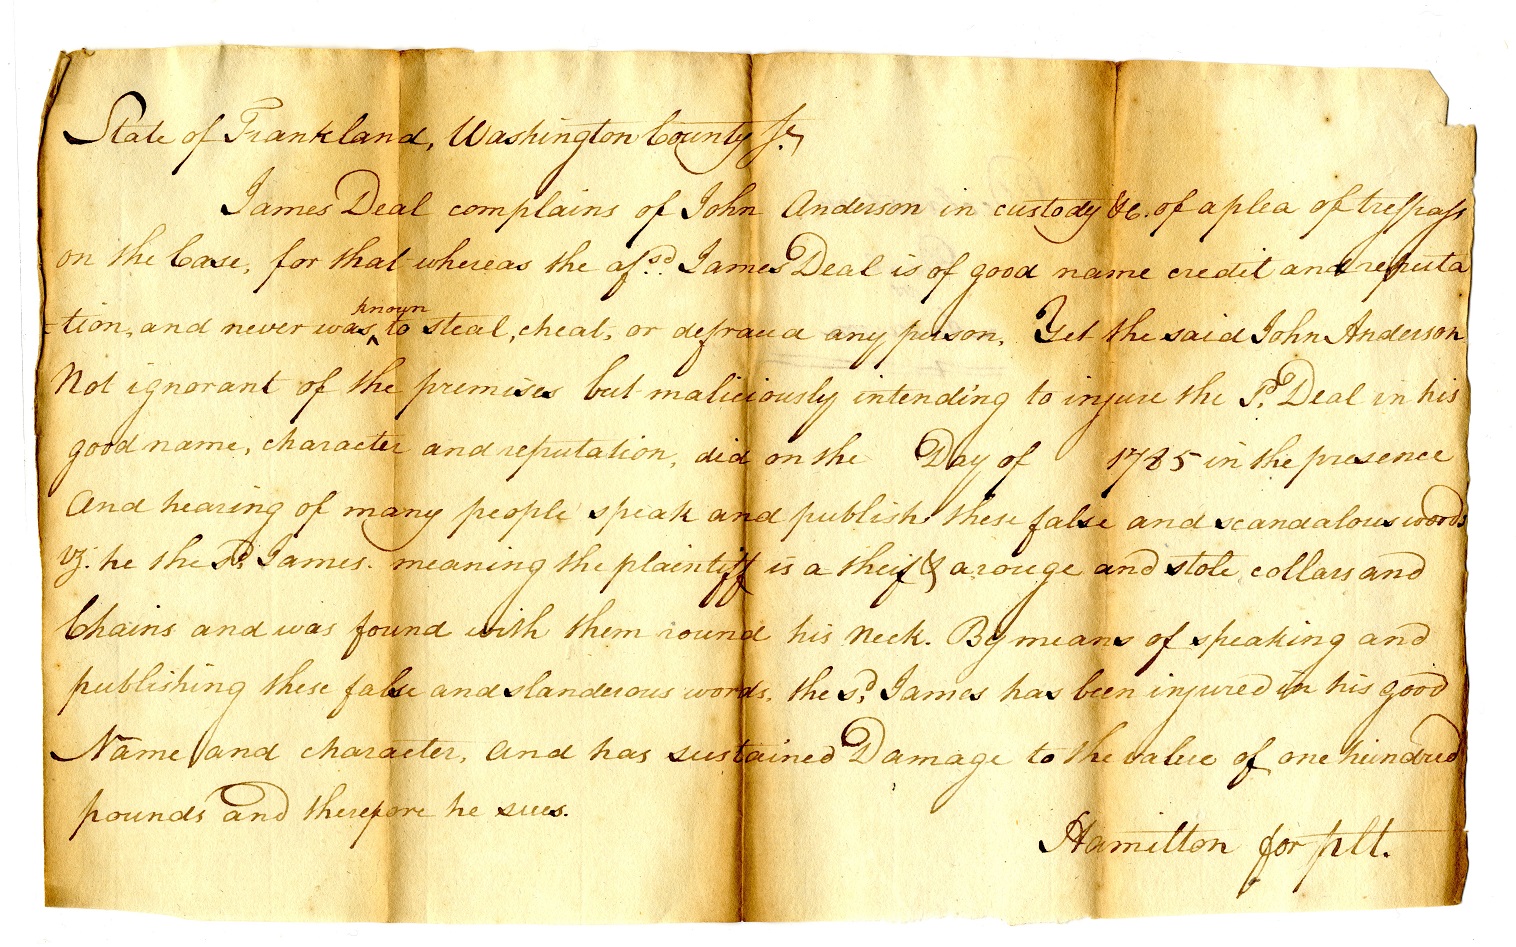 State of Frankland, Washington County Sc.
James Deal complains of John Anderson in custody &c. of a plea of trespass
on the Case, for that whereas the afsd. James Deal is of good name credit and reputa
-tion, and never was known to steal, cheat, or defraud any person, Yet the said John Anderson
Not ignorant of the premises but maliciously intending to injure the sd. Deal in his
good name, character and reputation, did on the Day of 1785 in the presence
And hearing of many people speak and publish these false and scandalous words
vz. he the sd. James. meaning the plaintiff is a theif & a rouge and stole collars and
Chains and was found with them round his Neck. By means of speaking and
publishing these false and slanderous words. the sd. James has been injured in his good
Name and character, and has sustained Damage to the value of one hundred
pounds and therefore he sues.
Hamilton for plt.